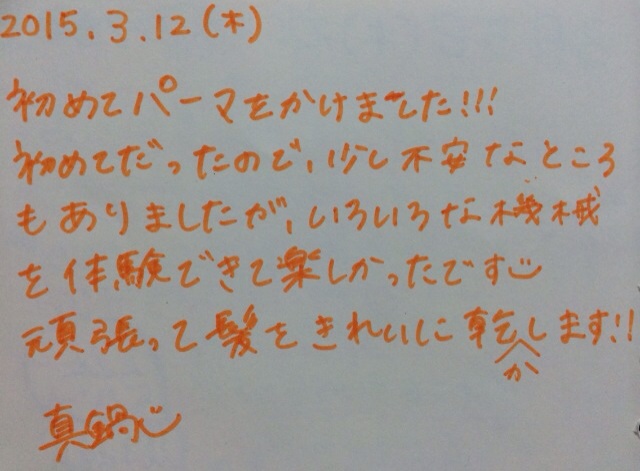 2015.3.12(木)
初めてパーマをかけました!!!
初めてだったので、少し不安なところ
もありましたが、いろいろな機械
を体験できて楽しかったです
頑張って髪をきれいに乾かします!!
真鍋